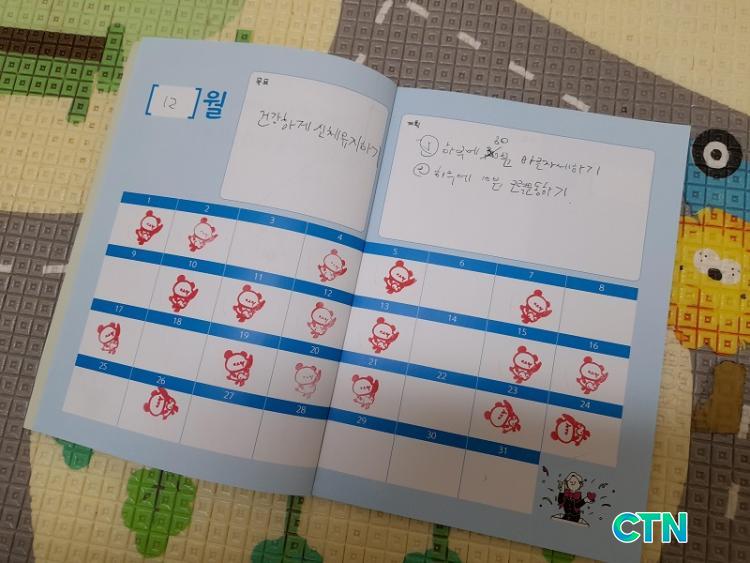 [12]월
목표
건강하게 신체유지하기
계획
① 하루에 30분 바른자세하기
② 하루에 10분 근력운동하기.
1 2 3 4 5 6 7 8
9 10 11 12 13 14 15 16
17 18 19 20 21 22 23 24
25 26 27 28 29 30 31
CTN